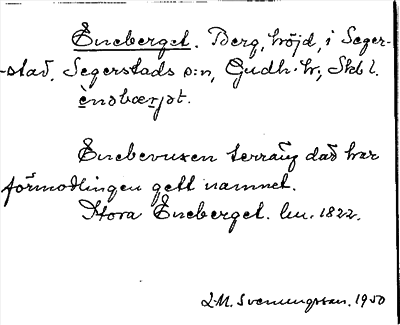 Eneberget. Berg, höjd, i Seger-
-stad, Segerstads s:n, Gudh. h:, Skb l.
ènəbærjət.
Enebevuxen terräng där har
förmodlingen gett namnet.
Stora Eneberget. lm. 1822.
L.M. Svenungsson. 1950